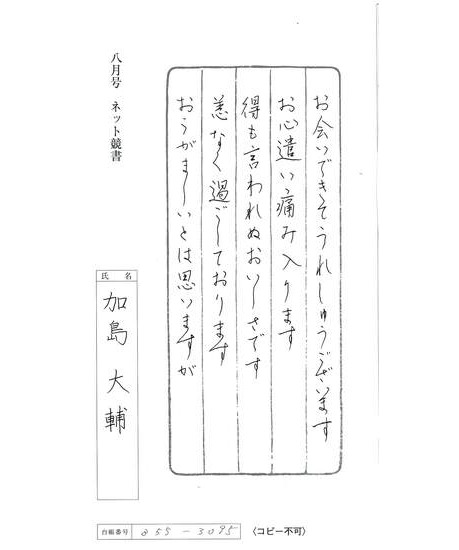 お会いできてうれしゅうございます
お心遣い痛み入ります
得も言われぬおいしさです
恙なく過ごしております
おこがましいとは思いますが
八月号 ネット競書
氏 名
加島 大輔
台帳番号
〈コピー不可〉